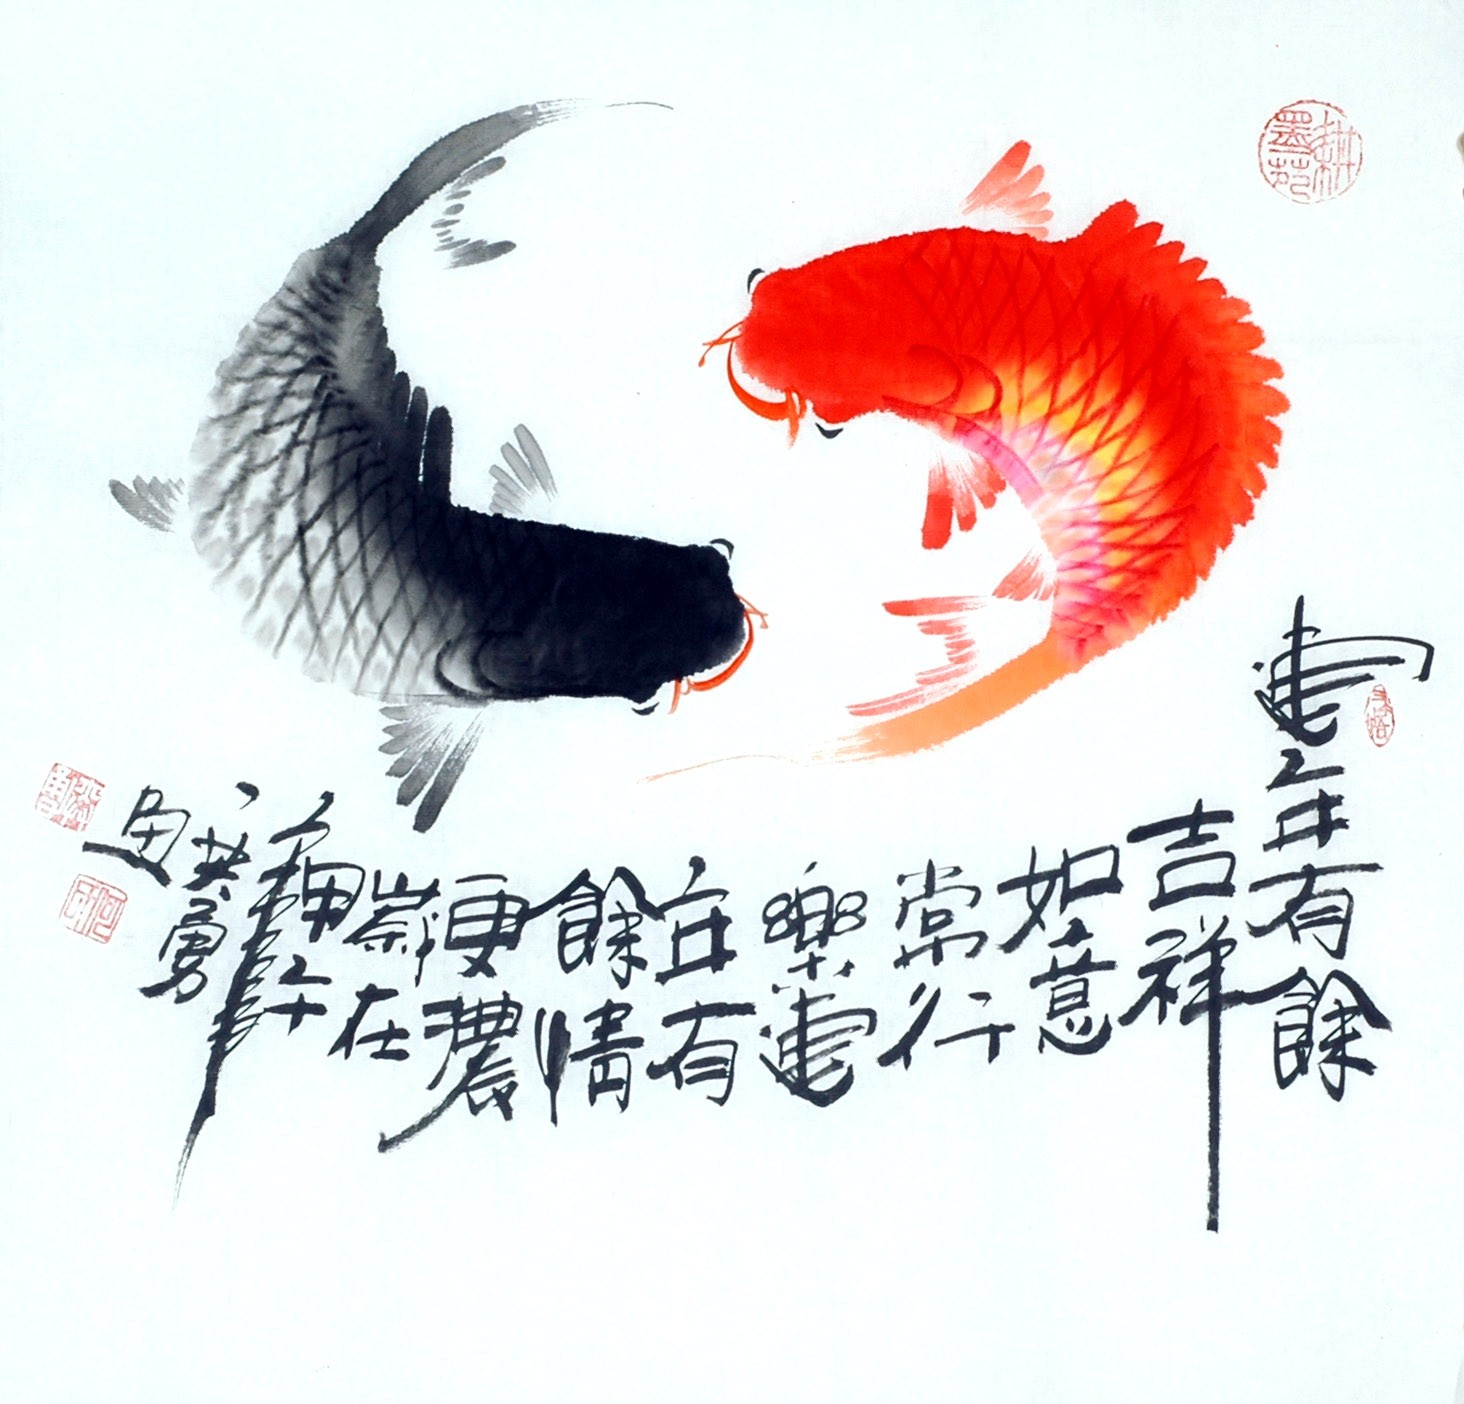 連年有餘
吉祥
如意
常行
樂連
年有
餘情
更濃
歲在
甲午
勇